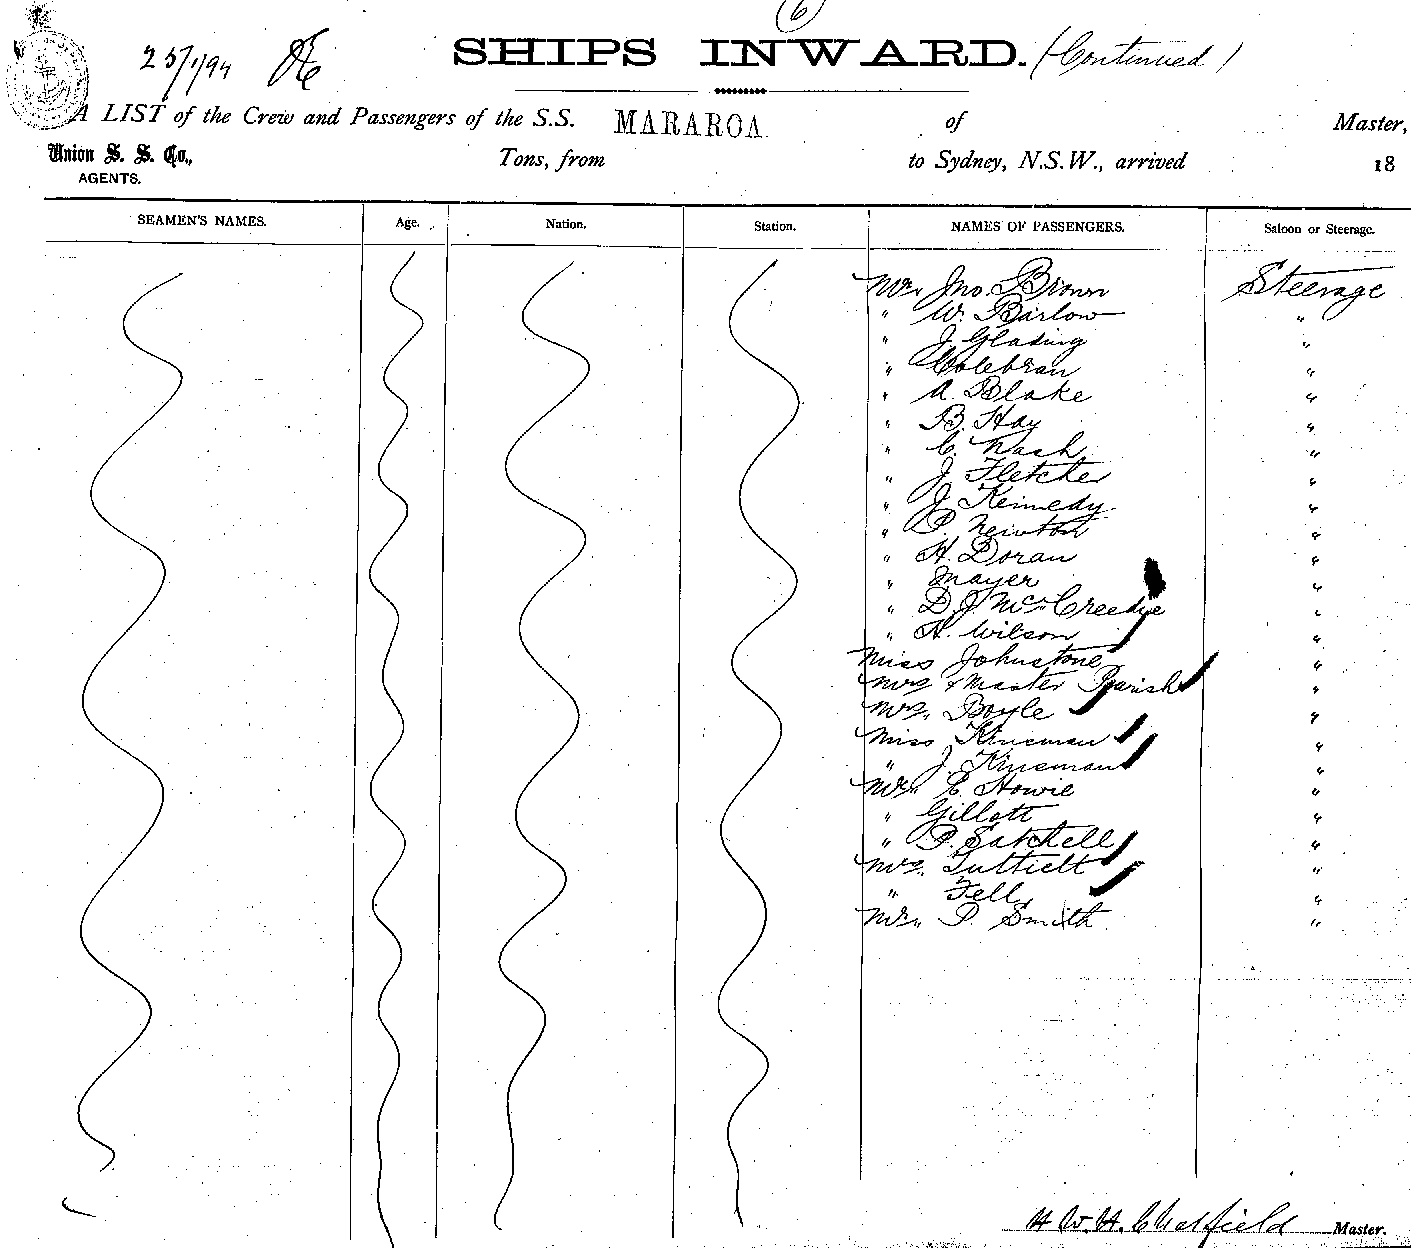 (6)
25/1/94
SHIPS INWARD. (Continued)
A LIST of the Crew and Passengers of the S.S. MARAROA of Master,
Union S. S. Co.,
AGENTS.
Tons, from to Sydney, N.S.W., arrived 18
SEAMEN'S NAMES. Age. Nation. Station. NAMES OF PASSENGERS. Saloon or Steerage.
Mr. Jno. Brown Steerage
" W. Barlow "
" J. Glading "
" Colebran "
" A. Blake "
" B. Hay "
" C. Nash "
" J. Fletcher "
" J. Kennedy "
" P. Newton "
" H. Doran "
" Mayer "
" D. J. McCreedye "
" H. Wilson "
Miss Johnstone "
Mrs & Master Parish "
Mrs. Boyle "
Miss Kinsman "
" J. Kinsman "
Mr. E. Howie "
" Gillott "
" P. Satchell "
Mrs. Tuttiett "
" Fell "
Mr. P. Smith "
H. W. H. Chatfield Master.